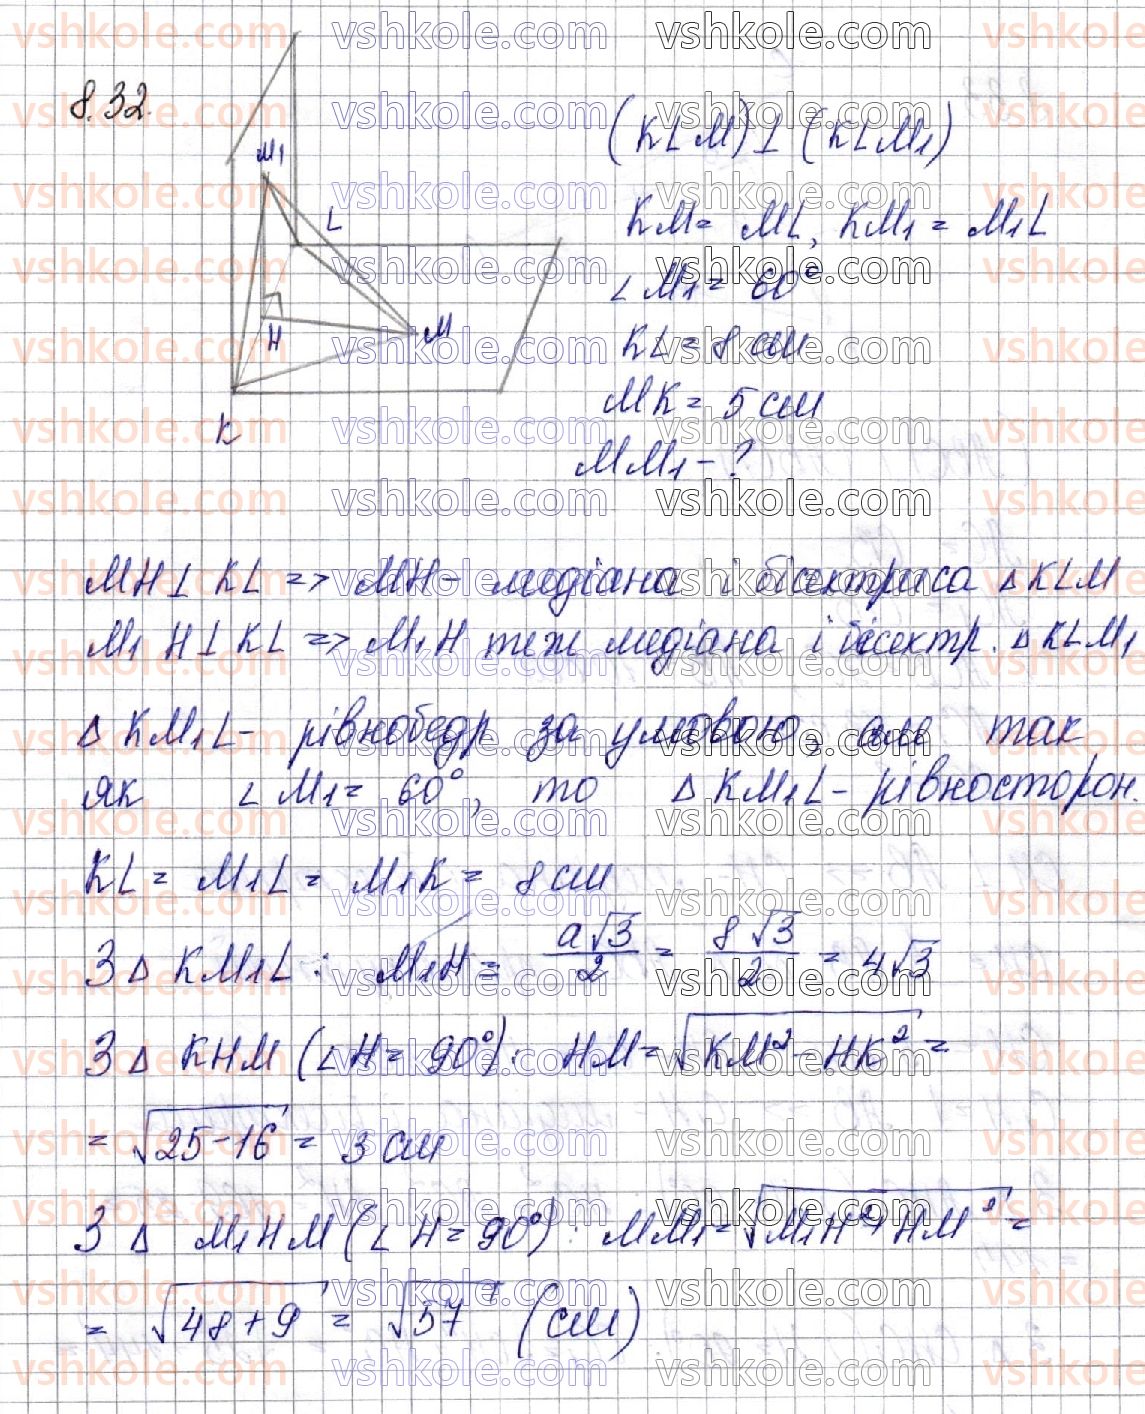 8.32.
M₁
L
H
M
K
(KLM)⊥(KLM₁)
KM = ML, KM₁ = M₁L
∠M₁ = 60°
KL = 8 см
MK = 5 см
MM₁ - ?
MH⊥KL => MH - медіана і бісектриса △KLM
M₁H⊥KL => M₁H теж медіана і бісектр. △KLM₁
△KM₁L - рівнобедр за умовою, але так
як ∠M₁ = 60°, то △KM₁L - рівносторон.
KL = M₁L = M₁K = 8 см
З △KM₁L: M₁H = a√3/2 = 8√3/2 = 4√3
З △KHM (∠H = 90°): HM = √(KM² - HK²) =
= √(25 - 16) = 3 см
З △M₁HM (∠H = 90°): MM₁ = √(M₁H² + HM²) =
= √(48 + 9) = √57 (см)
vshkole.com